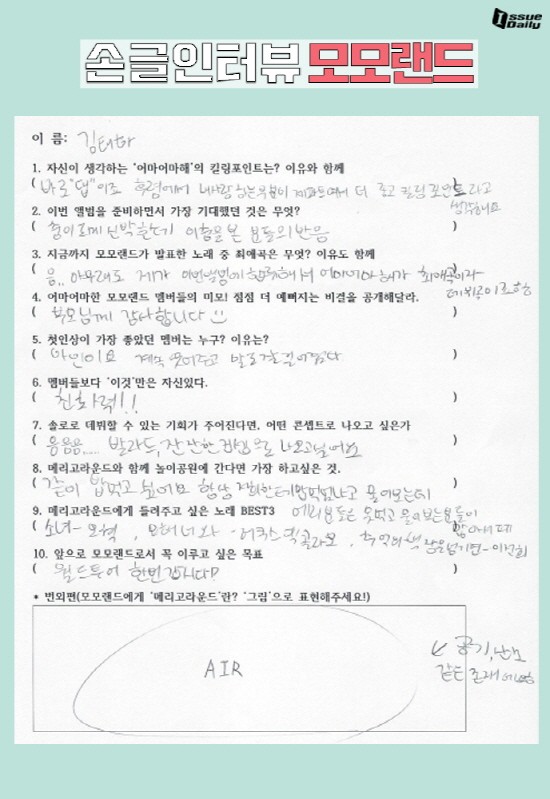 Issue Daily
손글인터뷰 모모랜드
이 름: 김태하
1. 자신이 생각하는 '어마어마해'의 킬링포인트는? 이유와 함께
( 바로 "댑"이죠 후렴에서 내사랑하는부분이 제파트여서 더 좋고 킬링 포인트라고 )
생각해요
2. 이번 앨범을 준비하면서 가장 기대했던 것은 무엇?
3. 지금까지 모모랜드가 발표한 노래 중 최애곡은 무엇? 이유도 함께
( 음.. 아무래도 제가 이번앨범에 합류해서 어마어마해가 최애곡이자
데뷔곡이죠
4. 어마어마한 모모랜드 멤버들의 미모! 점점 더 예뻐지는 비결을 공개해달라.
( 부모님께 감사합니다 )
5. 첫인상이 가장 좋았던 멤버는 누구? 이유는?
( 아인이요 계속 웃어주고 )
6. 멤버들보다 '이것'만은 자신있다.
( 친화력!! )
7. 솔로로 데뷔할 수 있는 기회가 주어진다면, 어떤 콘셉트로 나오고 싶은가
( 음음음..... 발라드, 잔잔한 컨셉으로 나오고싶어요 )
8. 메리고라운드와 함께 놀이공원에 간다면 가장 하고싶은 것.
( 같이 밥먹고 싶어요 항상 저희한테 밥먹었냐고 물어보는데 )
메리분들은 못먹고 물어보는분들이
많아서 ㅠㅠ
9. 메리고라운드에게 들려주고 싶은 노래 BEST3
( 소녀-오혁, 어쿠스틱콜라보, 추억의 책장을넘기면-이선희 )
10. 앞으로 모모랜드로서 꼭 이루고 싶은 목표
( 월드투어 한번갑시다? )
* 번외편(모모랜드에게 '메리고라운드'란? '그림'으로 표현해주세요!)
AIR
공기, 산소
같은 존재